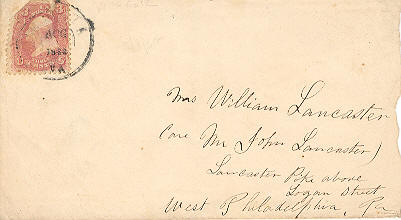 3 3
AUG
Mrs William Lancaster
Care Mr John Lancaster)
Lancaster Pke above
Logan Street
West Philadelphia Pa